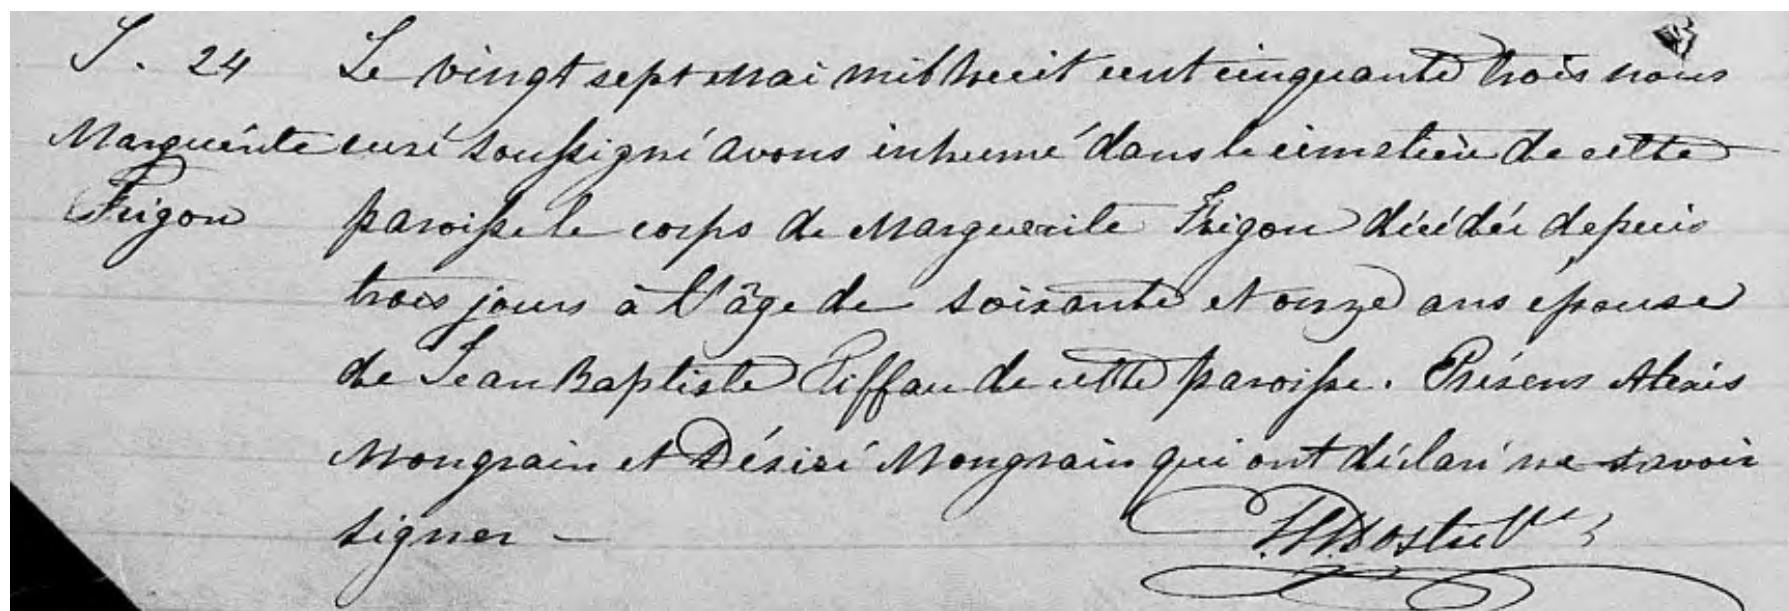 S. 24 Le vingt sept Mai mil huit cent cinquante trois nous
Marguérite curé soussigné avons inhumé dans le cimetière de cette
Frigon paroisse le corps de Marguerite Frigon décédée depuis
trois jours à l'âge de soixante et onze ans épouse
de Jean Baptiste Tiffau de cette paroisse. Présens Alexis
Mongrain et Désiré Mongrain qui ont déclaré ne savoir
signer —